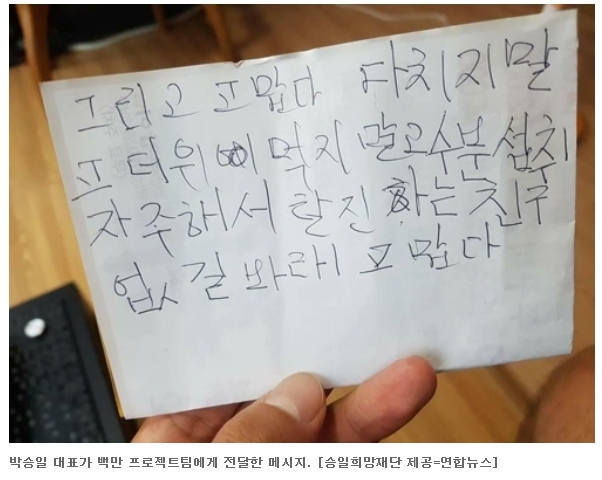 그리고 고맙다 다치지말
고 더위 먹지 말고 수분 섭취
자주해서 탈진 하는 친구
없길 바래 고맙다
박승일 대표가 백만 프로젝트팀에게 전달한 메시지. [승일희망재단 제공=연합뉴스]